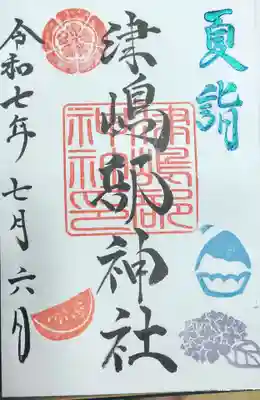 夏詣
津嶋部神社
津嶋部神社印
令和七年七月六日